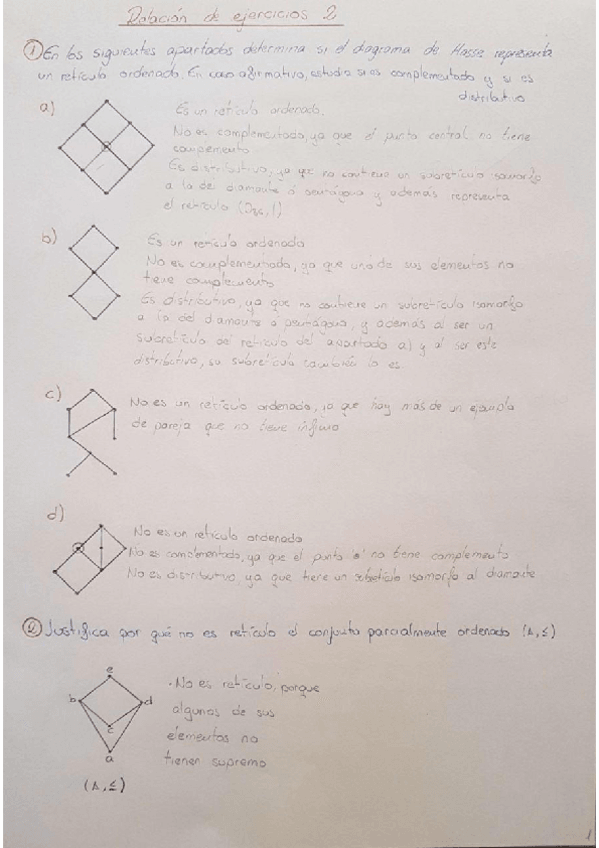 Relación de ejercicios 2
① En los siguientes apartados determina si el diagrama de Hasse representa
un retículo ordenado. En caso afirmativo, estudia si es complementado y si es
distributivo
a)
Es un retículo ordenado.
No es complementado, ya que el punto central no tiene
complemento
Es distributivo, ya que no contiene un subretículo isomorfo
a la del diamante o pentágono y además representa
el retículo (D₃₆, |)
b)
Es un retículo ordenado
No es complementado, ya que uno de sus elementos no
tiene complemento
Es distributivo, ya que no contiene un subretículo isomorfo
a la del diamante o pentágono, y además al ser un
subretículo del retículo del apartado a) y al ser este
distributivo, su subretículo también lo es.
c)
No es un retículo ordenado, ya que hay más de un ejemplo
de pareja que no tiene ínfimo
d)
No es un retículo ordenado
No es complementado, ya que el punto no tiene complemento
No es distributivo, ya que tiene un subretículo isomorfo al diamante
② Justifica por qué no es retículo el conjunto parcialmente ordenado (A,≤)
e
b
d
c
a
(A,≤)
·No es retículo, porque
algunos de sus
elementos no
tienen supremo
1